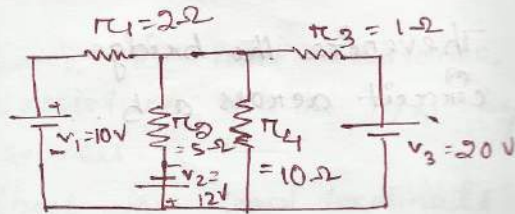 r1=2Ω
r3=1Ω
+
- v1=10V
r2
=5Ω
r4
=10Ω
-
v2=
12V
+
v3=20V